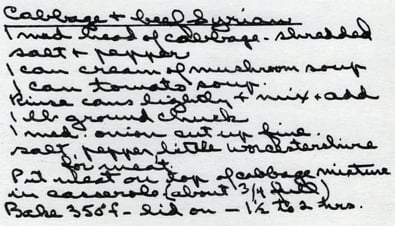 Cabbage + beef Syrian
1 med head of cabbage - shredded
salt + pepper
1 can cream of mushroom soup
1 can tomato soup.
Rinse cans lightly + mix + add
1 lb ground chuck
1 med. onion cut up fine.
salt, pepper, little worcestershire
for meat.
Put meat on top of cabbage mixture
in casserole (about 3/4 full)
Bake 350°f - lid on - 1 1/2 to 2 hrs.